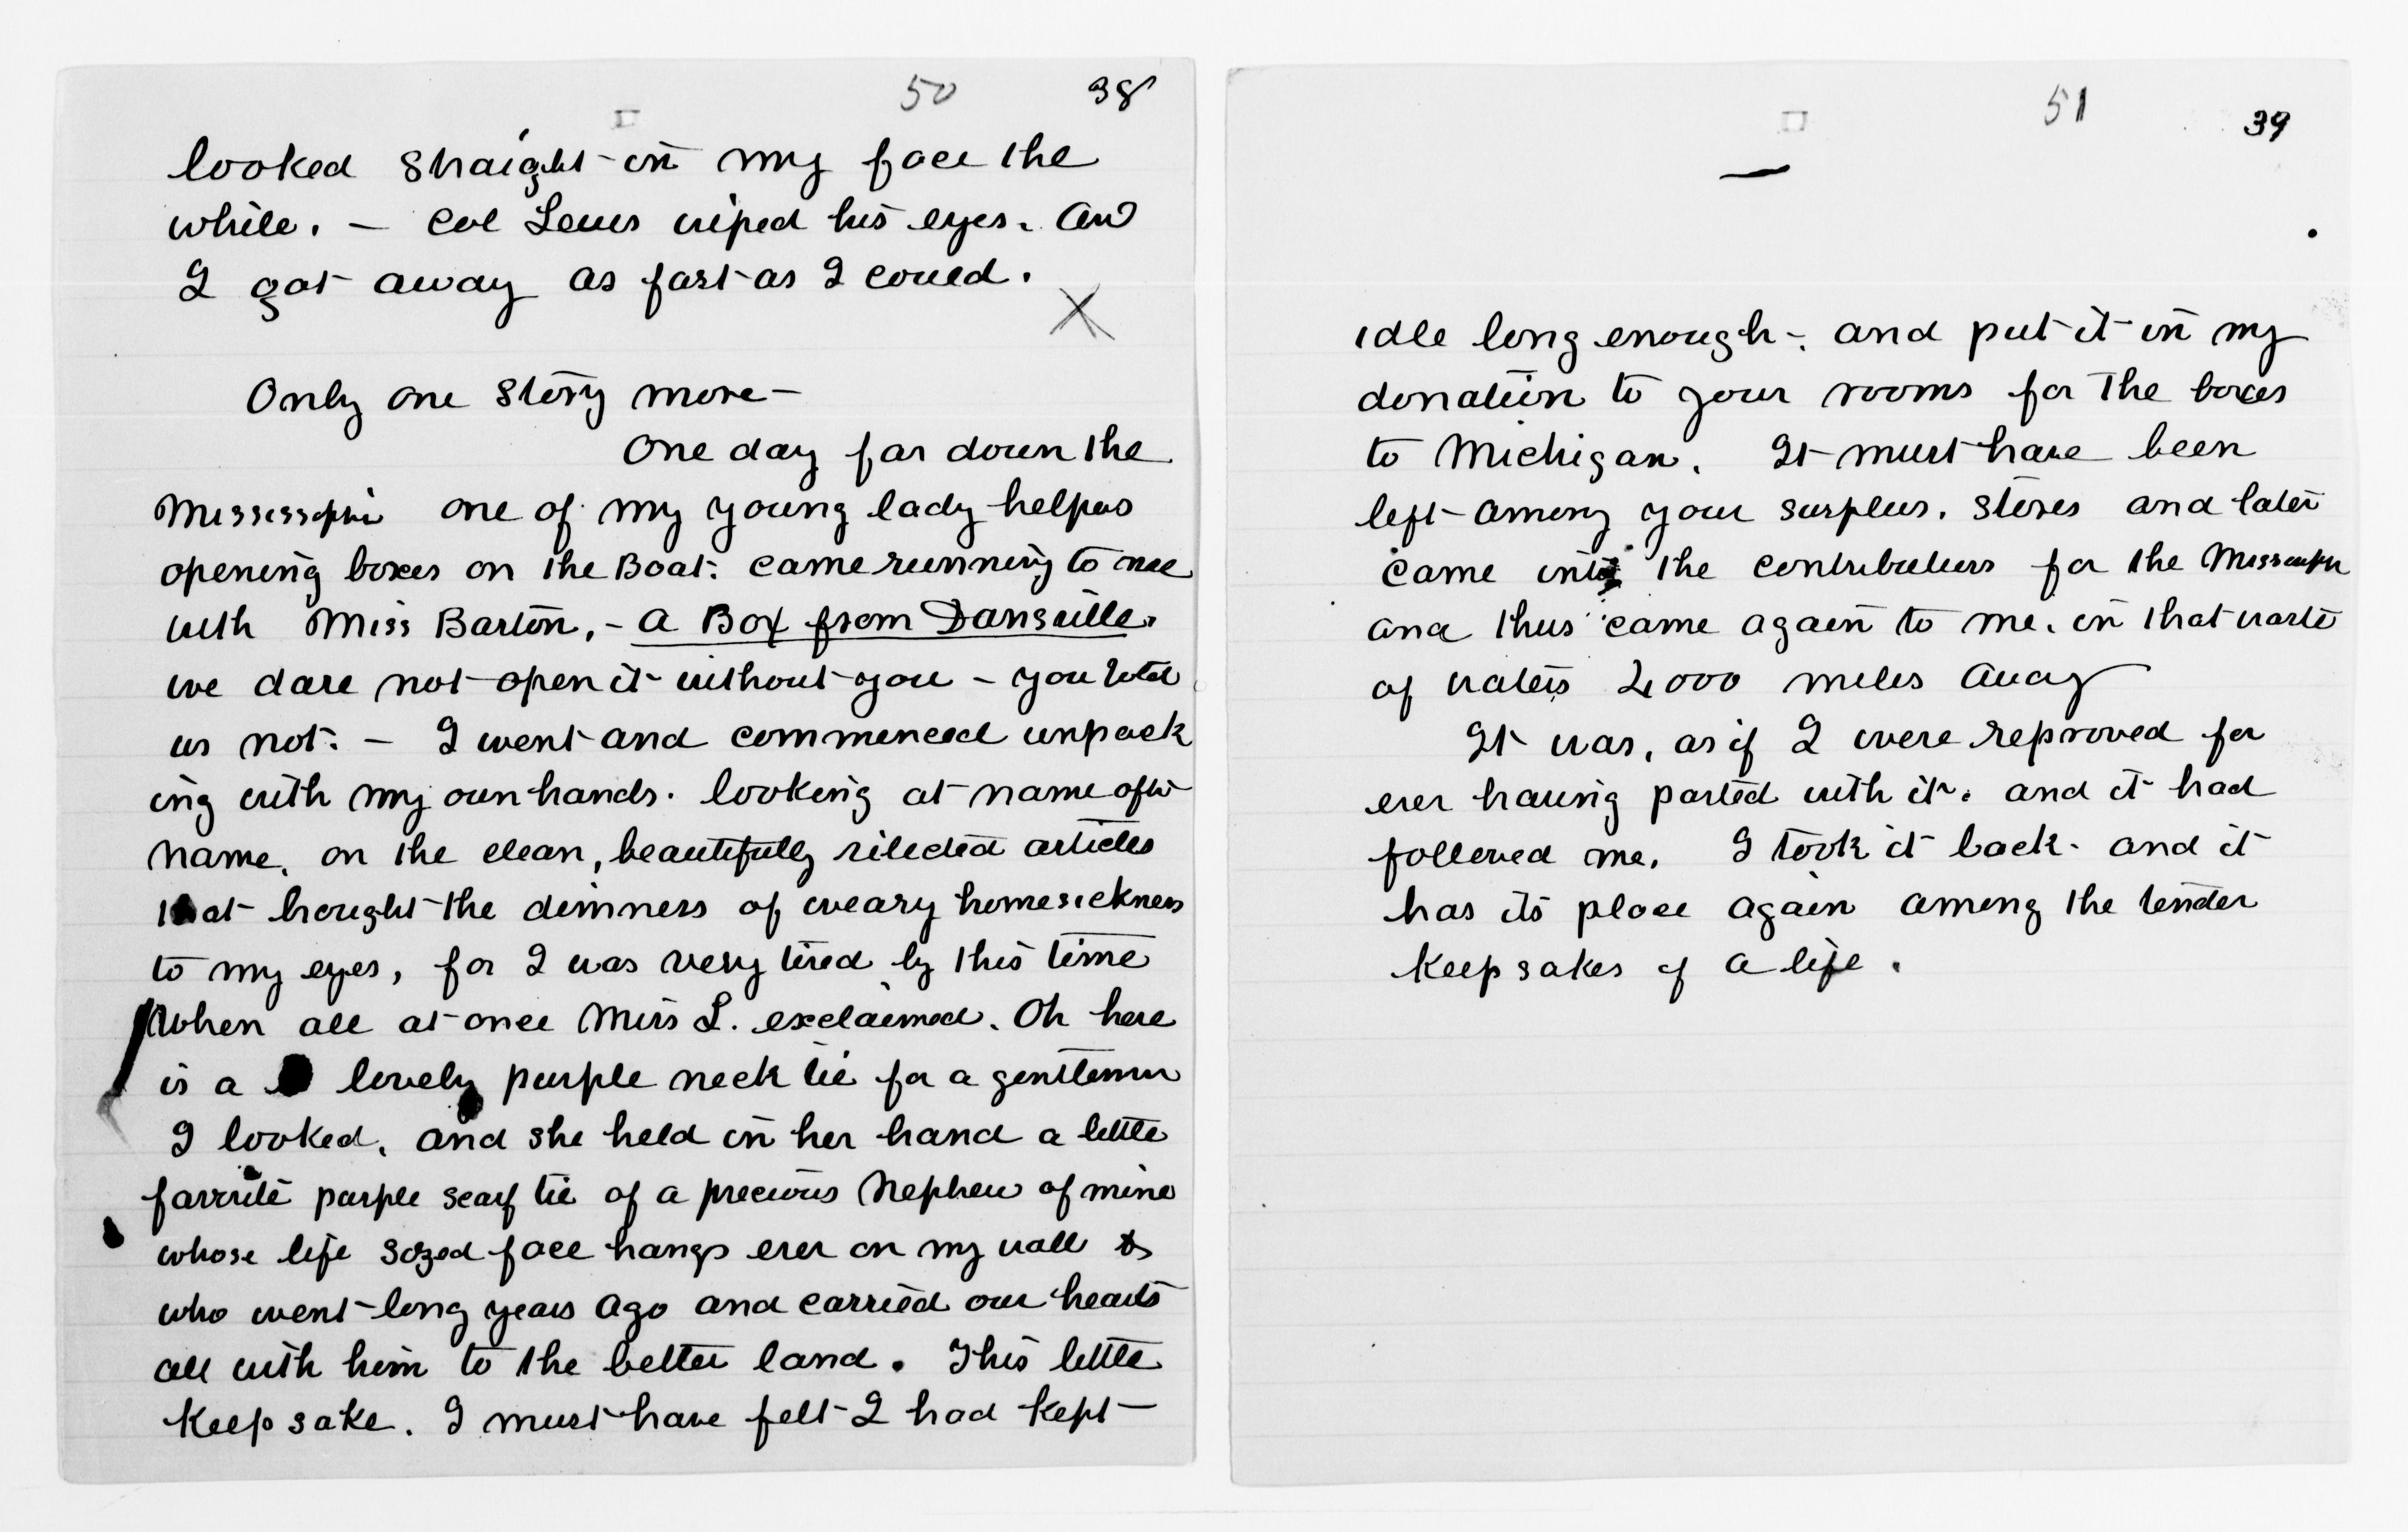 50 38
looked straight in my face the
while. – Col Lewis wiped his eyes. and
I got away as fast as I could.
X
Only one story more –
One day far down the
Mississippi one of my young lady helpers
opening boxes on the Boat: came running to me
with Miss Barton, – a Box from Dansville.
we dare not open it without you – you told
us not. – I went and commenced unpack
ing with my own hands. looking at name after
name. on the clean, beautifully selected articles
that brought the dimness of weary homesickness
to my eyes, for I was very tired by this time
When all at once Miss L. exclaimed. Oh here
is a lovely purple neck tie for a gentleman
I looked. and she held in her hand a little
favorite purple scarf tie of a precious Nephew of mine
whose life sized face hangs ever on my wall &
who went long years ago and carried our hearts
all with him to the better land. This little
Keep sake. I must have felt I had kept
51 39
idle long enough –. and put it in my
donation to your rooms for the boxes
to Michigan. It must have been
left among your surplus. stores and later
came into the contributions for the Mississippi
and thus came again to me. in that waste
of waters 2000 miles away
It was, as if I were reproved for
ever having parted with it. and it had
followed me. I took it back. and it
has its place again among the tender
keep sakes of a life.